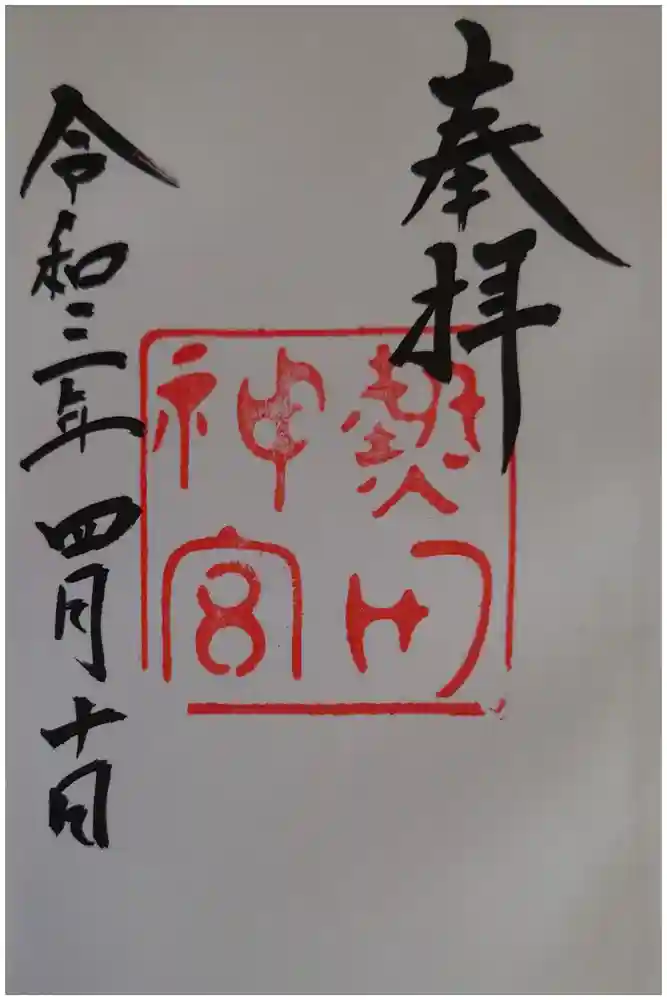 奉拝
熱田
神宮
令和三年四月十日